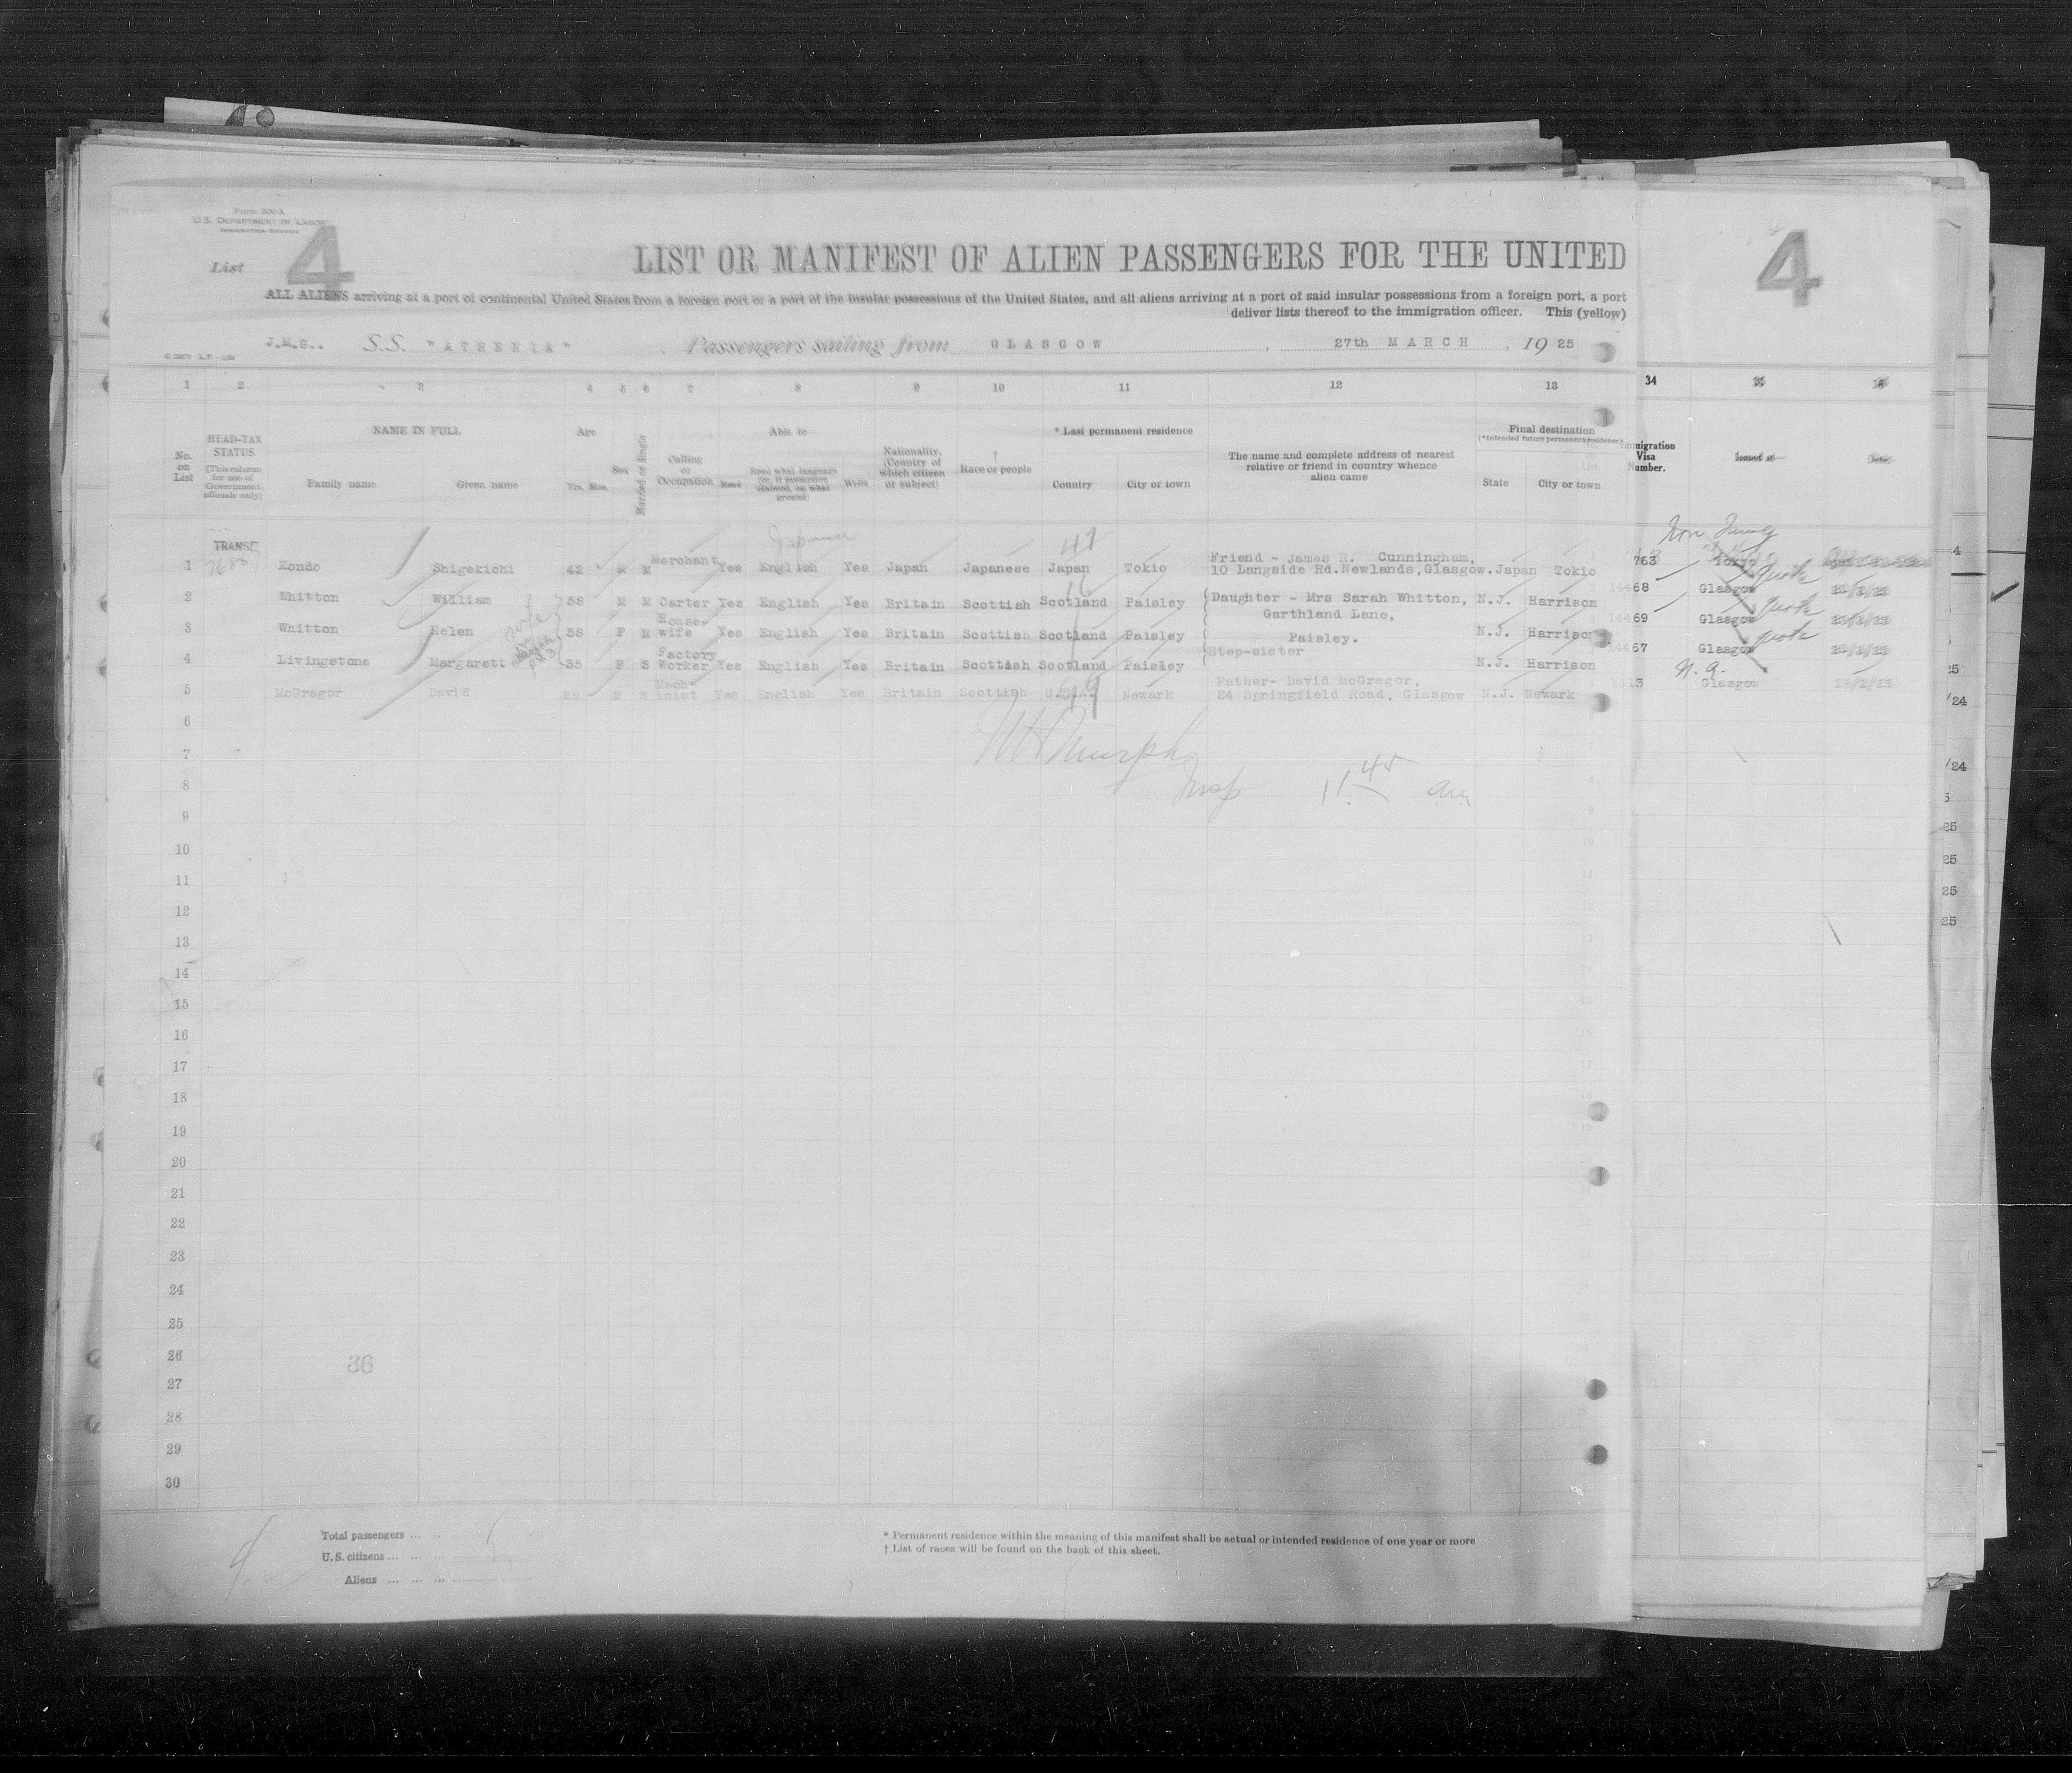 Form 500 A
U.S. DEPARTMENT OF LABOR
IMMIGRATION SERVICE
List 4
LIST OR MANIFEST OF ALIEN PASSENGERS FOR THE UNITED
4
ALL ALIENS arriving at a port of continental United States from a foreign port or a port of the insular possessions of the United States, and all aliens arriving at a port of said insular possessions from a foreign port, a port
deliver lists thereof to the immigration officer. This (yellow)
J.M.G.. S.S. "ATHENIA" Passengers sailing from GLASGOW, 27th MARCH, 19 25
1 2 3 4 5 6 7 8 9 10 11 12 13 34
No. on List
HEAD-TAX STATUS (This column for use of Government officials only)
NAME IN FULL
Family name Given name
Age
Yrs. Mos.
Sex
Married or Single
Calling or Occupation
Able to
Read Read what language (or, if exemption claimed, on what ground) Write
Nationality. (Country of which citizen or subject)
† Race or people
* Last permanent residence
Country City or town
The name and complete address of nearest relative or friend in country whence alien came
Final destination
(*Intended future permanent residence)
State City or town
Immigration Visa Number.
Issued at
Date
TRANSIT
1 Kondo Shigekichi 42 M Merchant Yes English Yes Japan Japanese Japan Tokio Friend - James R. Cunningham, 10 Langside Rd. Newlands, Glasgow. Japan Tokio 763 Tokyo
2 Whitton William 58 M M Carter Yes English Yes Britain Scottish Scotland Paisley Daughter - Mrs Sarah Whitton, N.J. Harrison 14468 Glasgow quota
Garthland Lane,
3 Whitton Helen wife 58 F M House-wife Yes English Yes Britain Scottish Scotland Paisley Paisley. N.J. Harrison 14469 Glasgow quota
4 Livingstone Margarett 35 F S Factory Worker Yes English Yes Britain Scottish Scotland Paisley Step-sister N.J. Harrison 14467 Glasgow quota
5 McGregor David 29 M S Mach-inist Yes English Yes Britain Scottish U.S.A. Newark Father- David McGregor, 24 Springfield Road, Glasgow N.J. Newark Glasgow
6
7
8
11 45 am
9
10
11
12
13
14
15
16
17
18
19
20
21
22
23
24
25
26
36
27
28
29
30
Total passengers ... ...
U.S. citizens ... ... ...
Aliens ... ... ...
* Permanent residence within the meaning of this manifest shall be actual or intended residence of one year or more
† List of races will be found on the back of this sheet.